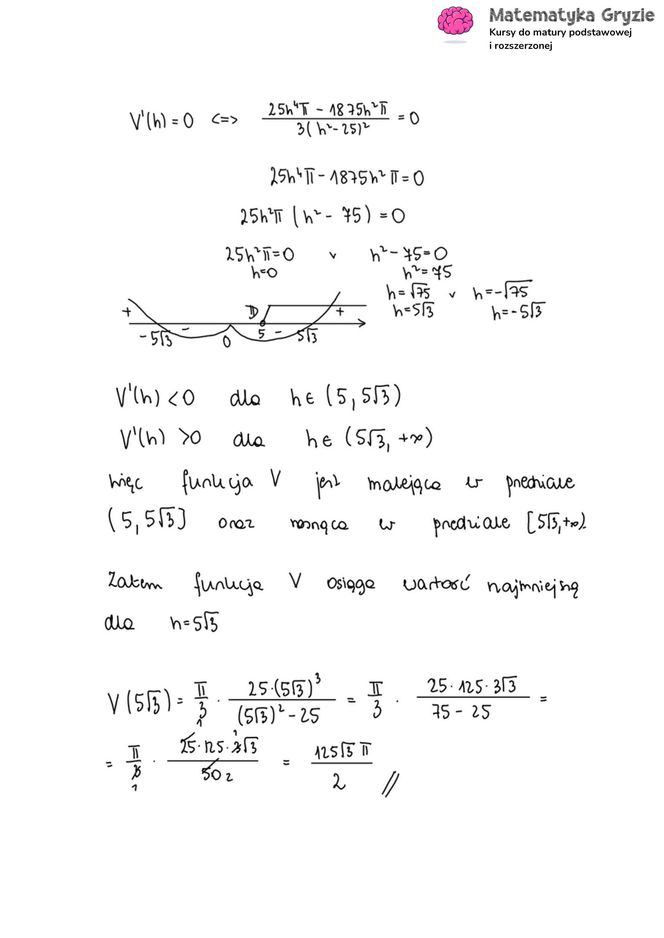 Matematyka Gryzie
Kursy do matury podstawowej
i rozszerzonej
V'(h) = 0 <=> (25h⁴π - 1875h²π)/(3(h²-25)²) = 0
25h⁴π - 1875h²π = 0
25h²π (h² - 75) = 0
25h²π = 0 v h² - 75 = 0
h = 0 h² = 75
h = √75 v h = -√75
h = 5√3 h = -5√3
+ - D - +
-5√3 0 5 5√3
V'(h) < 0 dla h ∈ (5, 5√3)
V'(h) > 0 dla h ∈ (5√3, +∞)
więc funkcja V jest malejąca w przedziale
(5, 5√3] oraz rosnąca w przedziale [5√3, +∞).
Zatem funkcja V osiąga wartość najmniejszą
dla h = 5√3
V(5√3) = π/3 · (25·(5√3)³)/((5√3)² - 25) = π/3 · (25·125·3√3)/(75 - 25) =
= π/3 · (25·125·3√3)/50 = (125√3 π)/2 //